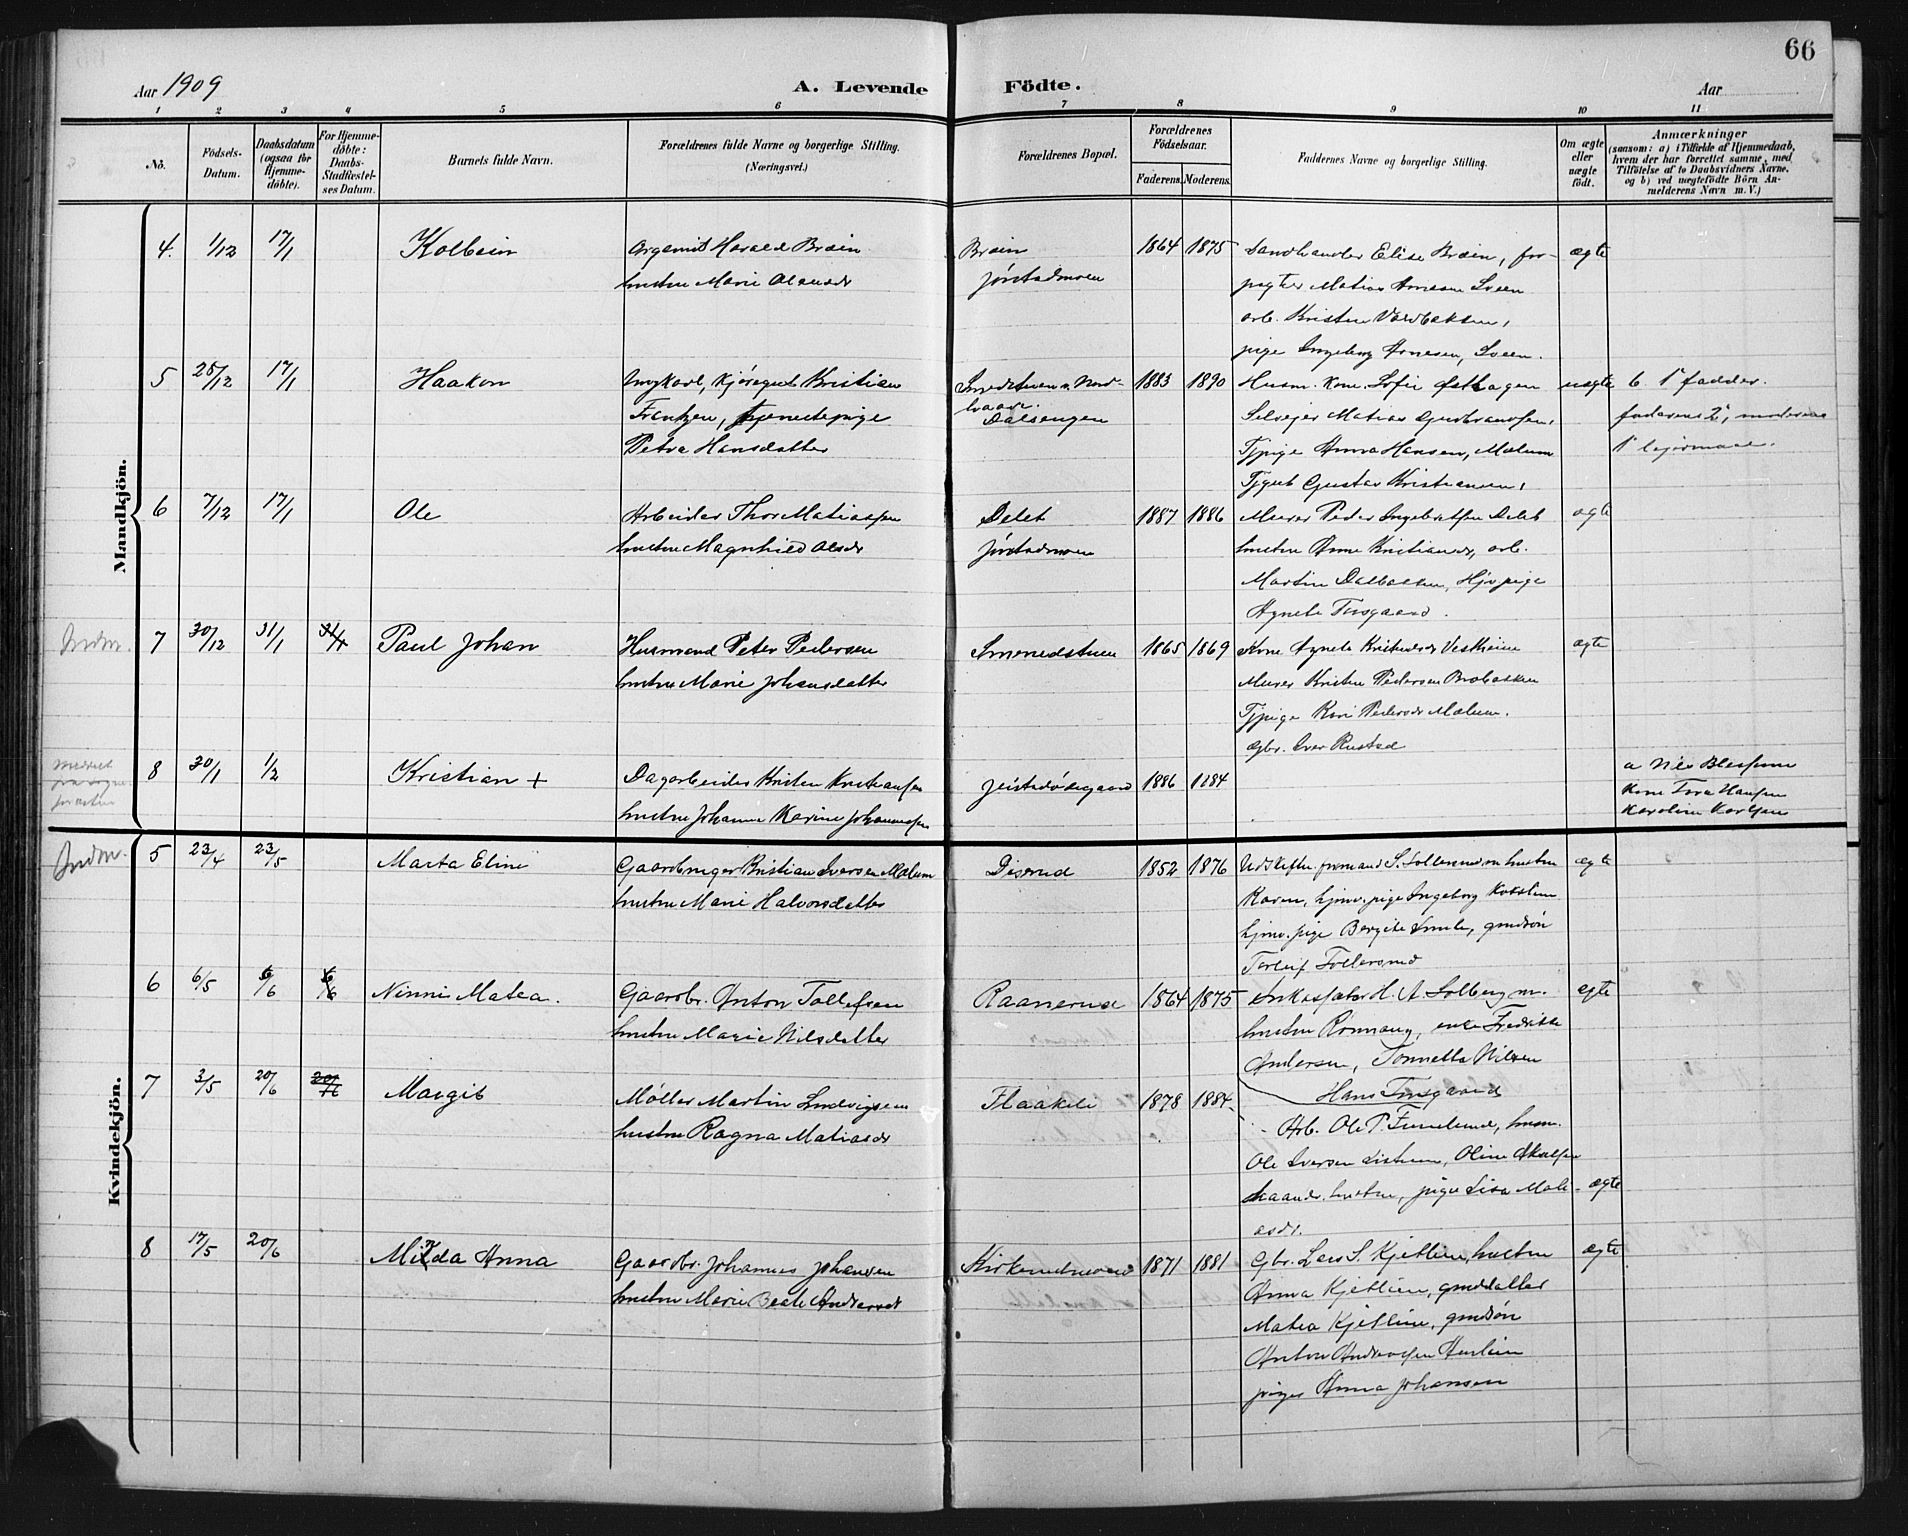 66
Aar 1909
A. Levende Födte.
Aar
1 2 3 4 5 6 7 8 9 10 11
No.
Födsels-Datum.
Daabsdatum (ogsaa for Hjemme-döbte).
For Hjemme-döbte: Daabs-Stadfæstel-ses Datum.
Barnets fulde Navn.
Forældrenes fulde Navne og borgerlige Stilling. (Næringsvei.)
Forældrenes Bopæl.
Forældrenes Födselsaar.
Faderens. Moderens.
Faddernes Navne og borgerlige Stilling.
Om ægte eller uægte födt.
Anmærkninger
(saasom: a) i Tilfælde af Hjemmedaab,
hvem der har forrettet samme, med
Tilföielse af to Daabsvidners Navne.
og b) ved uægtefödte Börn An-
melderens Navn m. V.)
Mandkjön.
4. 1/12 17/1 Kolbein
Harald Bræin
hustru Marie Olausdr
Bræin
Jørstadmoen
1864 1875
Landhandler Elise Bræin, for-
pagter Matias Arnesen Sveen
arb. Kristen
pige Ingeborg Arnesen, Sveen.
ægte
5 28/12 17/1 Haakon
Ungkarl, Kjøregut Kristian
Frantzen, tjenestepige
Petra Hansdatter
Dalsengen
1883 1890
Husm. kone Sofie Østhagen
Selveier Matias Gudbrandsen,
Tjpige Anna Hansen, Mælum
Tjgut Gustav Kristiansen,
uægte
b. 1ste fadder.
faderens 2, moderens
1 leiermaal.
6 7/12 17/1 Ole
Arbeider Thor Matiassen
hustru Magnhild Olsdr
Delet
Jørstadmoen
1887 1886
Murer Peder Ingebretsen Delet
hustru Anne Kristiansdr, arb.
Martin Dalbakken, Hjvpige
Agnete Fossgaard.
ægte
Indm. 7 30/12 31/1 31/1 Paul Johan
Husmand Peter Pedersen
hustru Marie Johansdatter
Smestadstuen
1865 1869
Kone Agnete Kristiansdr Vestheim
Murer Kristen Pedersen Brobakken
Tjpige Kari Pedersdr Mælum.
gbr. Iver Rustad
ægte
8 30/1 1/2 Kristian +
Dagarbeider Kristen Kristiansen
hustru Johanne Karine Johannesen
1886 1884
a Nils
Kone Tora Hansen
Karoline Karlsen
Kvindekjön.
Indm. 5 23/4 23/5 Marta Eline
Gaardbruger Kristian Iversen Mælum
hustru Marie Halvorsdatter
Diserud
1852 1876
Udskiftn. formand S. Tollersrud m. hustru
Karen, hjmv. pige Ingeborg
hjmv. pige Bergite Smile, grdsøn
Torleif Tollersrud
ægte
6 6/5 6/6 6/6 Ninni Matea.
Gaardbr. Anton Tollefsen
hustru Marie Nilsdatter
Raanerud
1864 1875
H. A. Solberg m.
hustru Rønnaug, enke Fredrikke
Andersen, Tonnetta Nilsen
Hans Fossgaard
ægte
7 3/5 20/6 20/6 Margit
Møller Martin Ludvigsen
hustru Ragna Matiasdr
Flaakeli
1878 1884
Arb. Ole P. Furulund, husm.
Ole Iversen Listuen, Oline
hustru, pige Lisa Mati-
asdr.
ægte
8 17/5 20/6 Minda Anna
Gaardbr. Johannes Johansen
hustru Marie Beate Andersdr
Kirkerudmoen
1871 1881
Gbr. Lars S. Kjetlien, hustru
Anna Kjetlien, grddatter
Matea Kjetlien, grdsøn
Anton
pige Anna Johansen
ægte